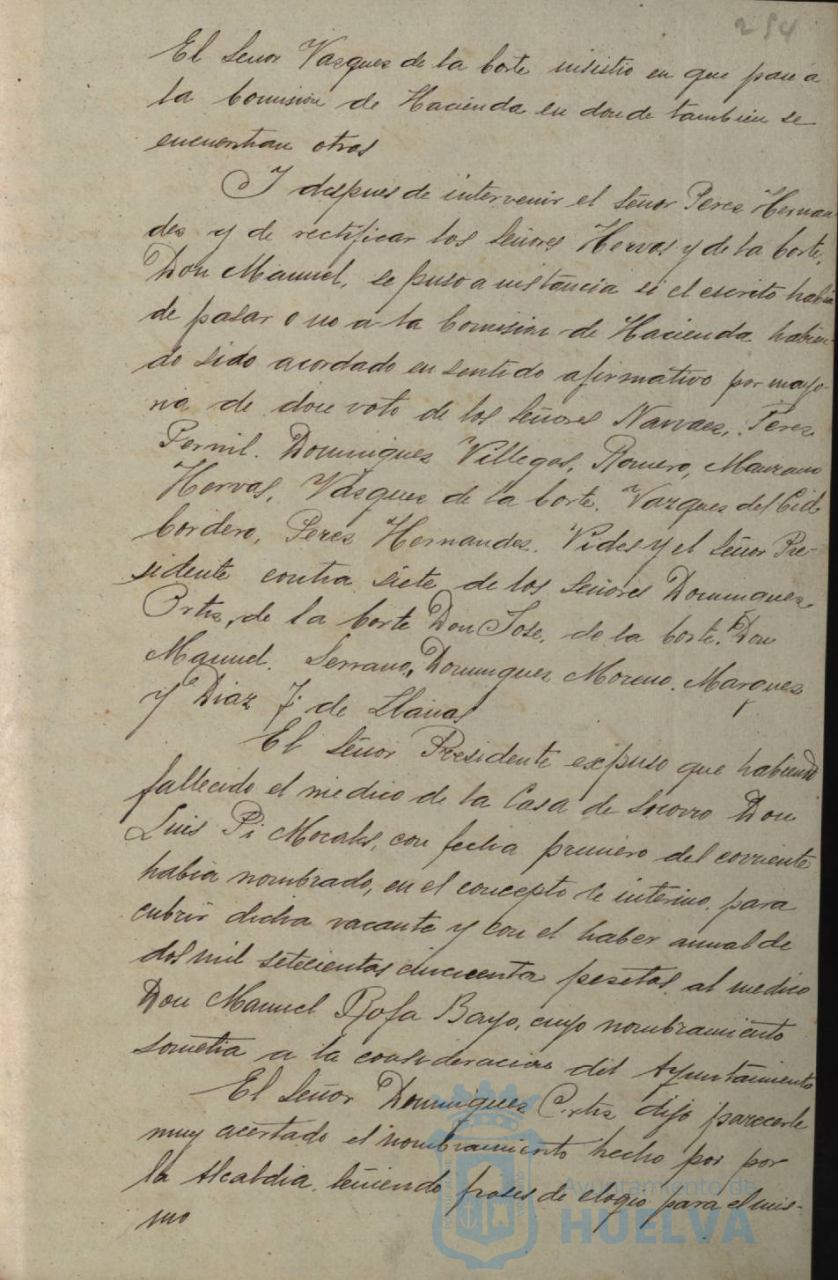 254
El Señor Vasquez de la Corte insistio en que pase a
la Comision de Hacienda en donde tambien se
encuentran otros
Y despues de intervenir el Señor Perez Hernan
dez y de rectificar los Señores Hervas y de la Corte,
Don Manuel, se puso a instancia si el escrito habia
de pasar o no a la Comision de Hacienda habien-
do sido acordado en sentido afirmativo por mayo-
ria de doce voto de los Señores Narvaez, Perez
Pernil. Dominguez Villegas, Romero, Manzano
Hervas, Vasquez de la Corte. Vazquez del Cid
Cordero, Perez Hernandez. Vides y el Señor Pre-
sidente contra siete de los Señores Dominguez
Ortiz, de la Corte Don Jose, de la Corte. Don
Manuel. Serrano, Dominguez Moreno. Marquez
y Diaz F. de Llanos
El Señor Presidente expuso que habiendo
fallecido el medico de la Casa de Socorro Don
Luis Pi Morales, con fecha primero del corriente
habia nombrado, en el concepto de interino, para
cubrir dicha vacante y con el haber anual de
dos mil setecientas cincuenta pesetas al medico
Don Manuel Rofa Bayo, cuyo nombramiento
sometia a la consideracion del Ayuntamiento
El Señor Dominguez Ortiz dijo parecerle
muy acertado el nombramiento hecho por por
la Alcaldia, teniendo frases de elogio para el mis-
mo
Ayuntamiento de
HUELVA